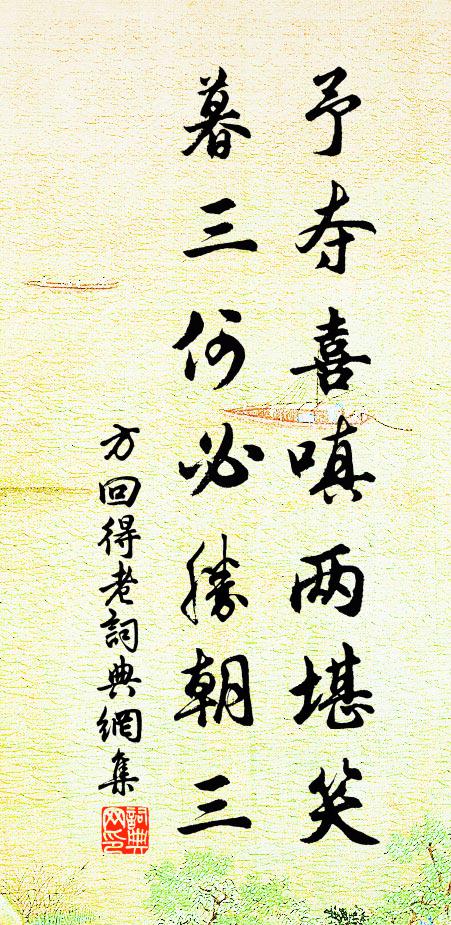 予夺喜嗔两堪笑
暮三何必勝朝三
方回得老詞典網集
詞典网印